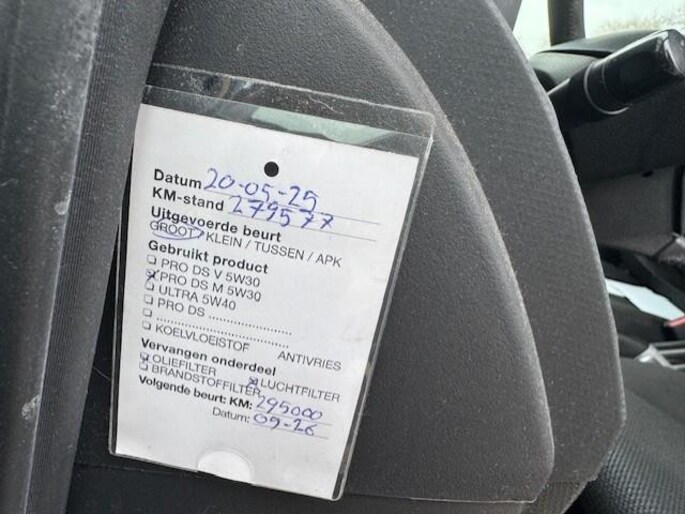 Datum 20-05-25
KM-stand 279577
Uitgevoerde beurt
GROOT / KLEIN / TUSSEN / APK
Gebruikt product
PRO DS V 5W30
PRO DS M 5W30
ULTRA 5W40
PRO DS ........................
........................
KOELVLOEISTOF ANTIVRIES
Vervangen onderdeel
OLIEFILTER LUCHTFILTER
BRANDSTOFFILTER
Volgende beurt: KM: 295000
Datum: 05-26